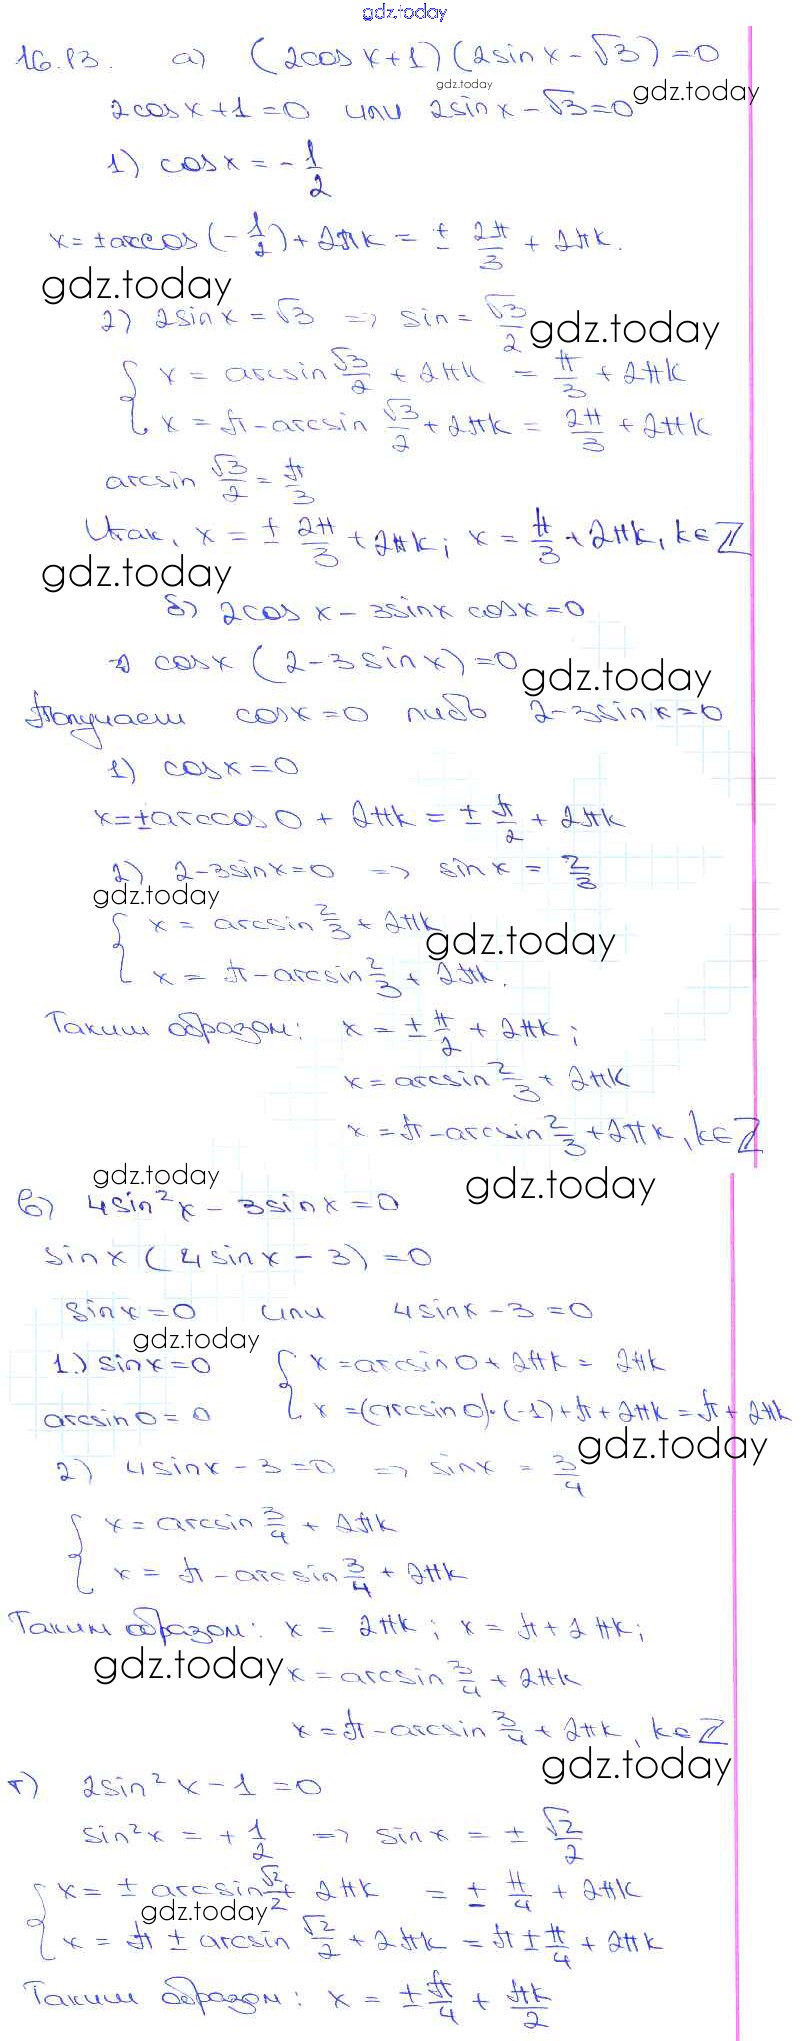 gdz.today
16.13. а) (2cos x + 1)(2sin x - √3) = 0
gdz.today
gdz.today
2cos x + 1 = 0 или 2sin x - √3 = 0
1) cos x = - 1/2
x = ± arccos(- 1/2) + 2πk = ± 2π/3 + 2πk.
gdz.today
2) 2sin x = √3 => sin = √3/2
gdz.today
{ x = arcsin √3/2 + 2πk = π/3 + 2πk
x = π - arcsin √3/2 + 2πk = 2π/3 + 2πk
arcsin √3/2 = π/3
Итак, x = ± 2π/3 + 2πk; x = π/3 + 2πk, k∈Z
gdz.today
б) 2cos x - 3sin x cos x = 0
cos x (2 - 3sin x) = 0
gdz.today
Получаем cos x = 0 либо 2 - 3sin x = 0
1) cos x = 0
x = ± arccos 0 + 2πk = ± π/2 + 2πk
2) 2 - 3sin x = 0 => sin x = 2/3
gdz.today
{ x = arcsin 2/3 + 2πk
gdz.today
x = π - arcsin 2/3 + 2πk.
Таким образом: x = ± π/2 + 2πk;
x = arcsin 2/3 + 2πk
x = π - arcsin 2/3 + 2πk, k∈Z
gdz.today
gdz.today
в) 4sin² x - 3sin x = 0
sin x (4sin x - 3) = 0
sin x = 0 или 4sin x - 3 = 0
gdz.today
1) sin x = 0 { x = arcsin 0 + 2πk = 2πk
arcsin 0 = 0 x = (arcsin 0)·(-1) + π + 2πk = π + 2πk
gdz.today
2) 4sin x - 3 = 0 => sin x = 3/4
{ x = arcsin 3/4 + 2πk
x = π - arcsin 3/4 + 2πk
Таким образом: x = 2πk; x = π + 2πk;
gdz.today
x = arcsin 3/4 + 2πk
x = π - arcsin 3/4 + 2πk, k∈Z
gdz.today
г) 2sin² x - 1 = 0
sin² x = + 1/2 => sin x = ± √2/2
{ x = ± arcsin √2/2 + 2πk = ± π/4 + 2πk
gdz.today
x = π ± arcsin √2/2 + 2πk = π ± π/4 + 2πk
Таким образом: x = ± π/4 + πk/2